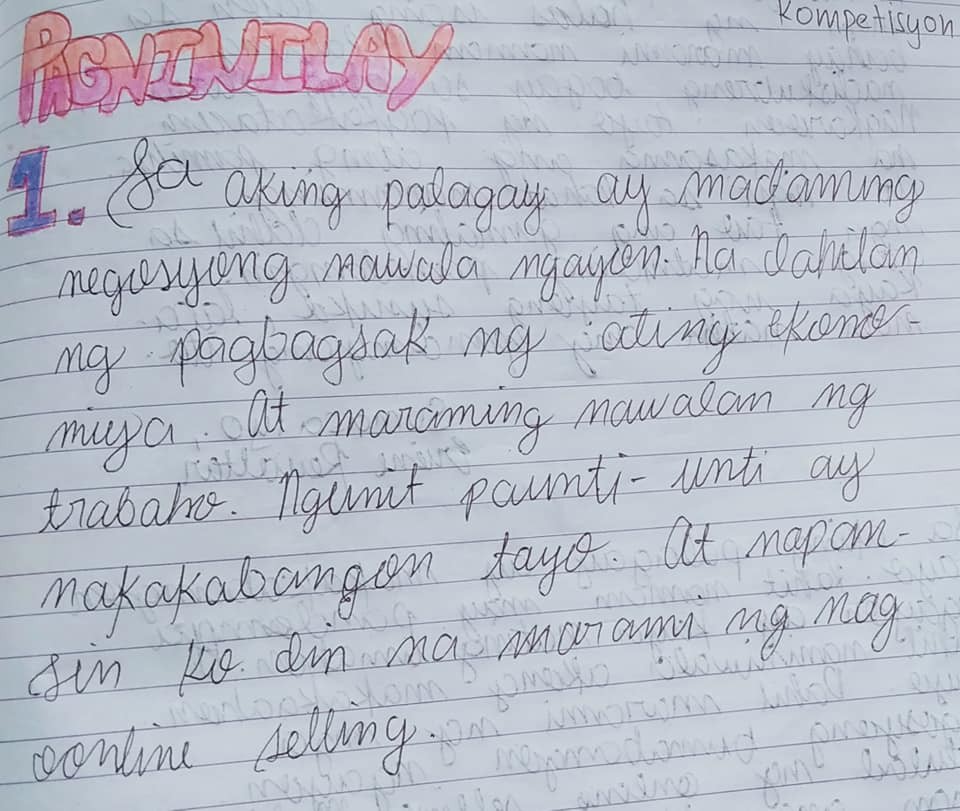 Kompetisyon
PAGNINILAY
1. Sa aking palagay ay madaming
negosyong nawala ngayon. Na dahilan
ng pagbagsak ng ating ekono-
miya. At maraming nawalan ng
trabaho. Ngunit paunti-unti ay
nakakabangon tayo. At napan-
sin ko din na marami ng nag
oonline selling.